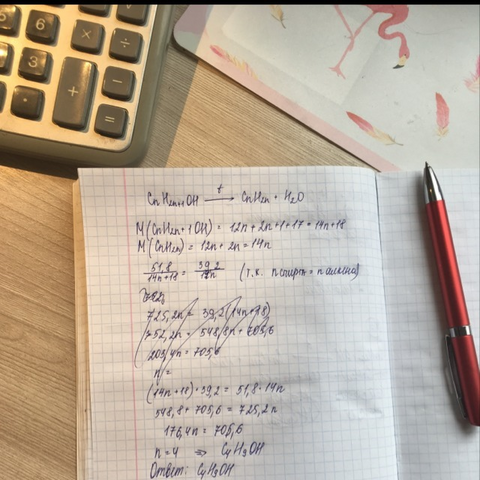 6 × ÷
3 + −
·
CnH2n+1OH —t→ CnH2n + H2O
M(CnH2n+1OH) = 12n + 2n+1+17 = 14n+18
M(CnH2n) = 12n + 2n = 14n
51,8/14n+18 = 39,2/14n (т.к. n спирта = n алкена)
725,2n = 39,2(14n+18)
752,2n = 548,8n + 705,6
203,4n = 705,6
n =
(14n+18)·39,2 = 51,8·14n
548,8 + 705,6 = 725,2n
176,4n = 705,6
n = 4 ⇒ C4H9OH
Ответ: C4H9OH